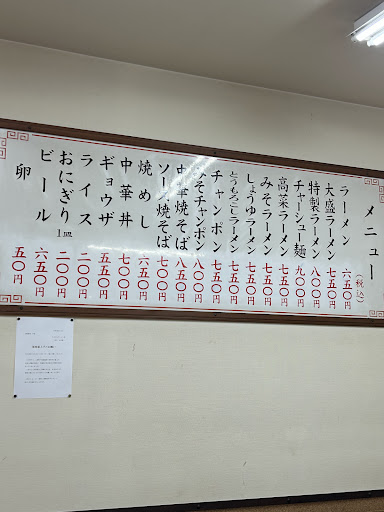 メニュー
(税込)
ラーメン 六五〇円
大盛ラーメン 七五〇円
特製ラーメン 八〇〇円
チャーシュー麺 九〇〇円
高菜ラーメン 七五〇円
みそラーメン 七五〇円
しょうゆラーメン 七五〇円
とうもろこしラーメン 七五〇円
チャンポン 七五〇円
みそチャンポン 八〇〇円
中華焼そば 八五〇円
ソース焼そば 七五〇円
焼めし 六五〇円
中華丼 七〇〇円
ギョウザ 五五〇円
ライス 二〇〇円
おにぎり1皿 二〇〇円
ビール 六五〇円
卵 五〇円